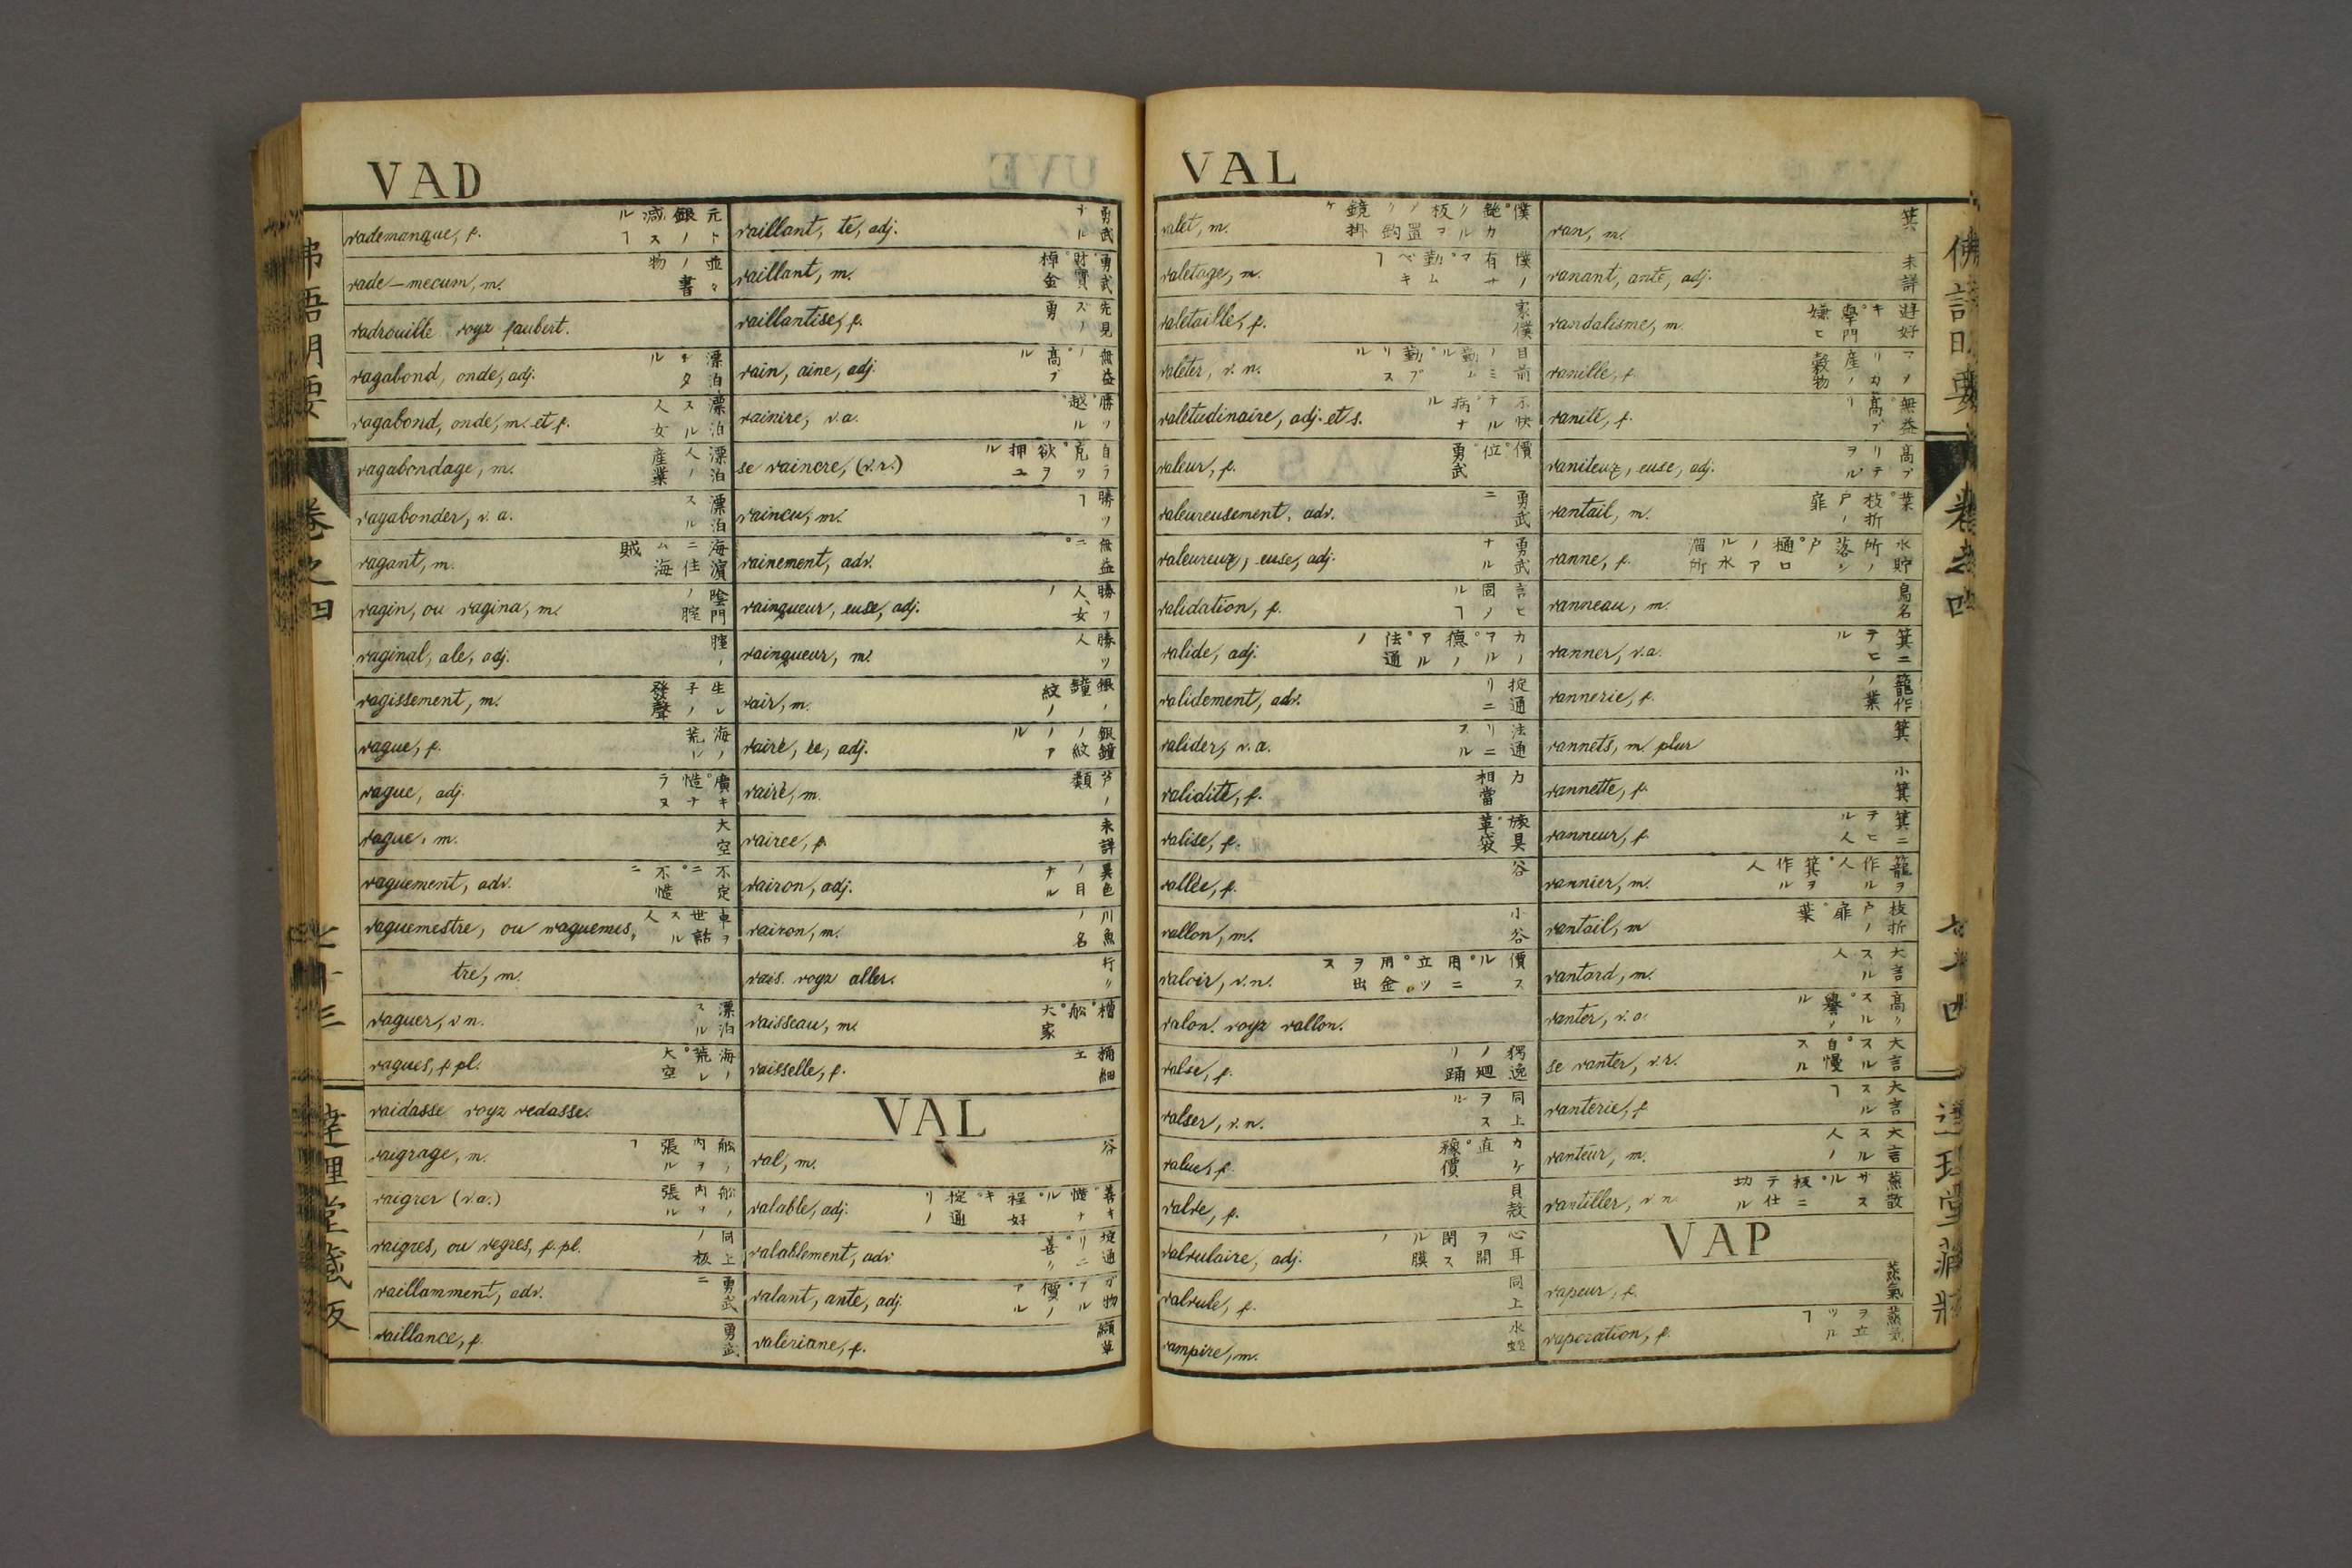 VAD
vademanque, f. 元トノ銀減スルヿ
vade-mecum, m. 並々ノ書物
vadrouille voyz faubert.
vagabond, onde, adj. 漂泊シタル
vagabond, onde, m. et f. 漂泊スル人女
vagabondage, m. 漂泊人ノ産業
vagabonder, v. a. 漂泊スル
vagant, m. 海濵ニ住ム海賊
vagin, ou vagina, m. 陰門ノ腟
vaginal, ale, adj. 腟ノ
vagissement, m. 生レ子ノ發聲
vague, f. 海ノ荒レ
vague, adj. 廣キ。慥ナラヌ
vague, m. 大空
vaguement, adv. 不定ニ。不慥ニ
vaguemestre, ou vaguemes, 車ヲ世話スル人
tre, m.
vaguer, v n. 漂泊スル
vagues, f. pl. 海ノ荒レ。大空
vaidasse voyz vedasse.
vaigrage, m. 舩ノ内ヲ張ルヿ
vaigrer (v.a.) 舩ノ内ヲ張ル
vaigres, ou vegres, f. pl. 同上ノ板
vaillamment, adv. 勇武ニ
vaillance, f. 勇武
vaillant, te, adj. 勇武ナル
vaillant, m. 勇武。財寳。掉金
vaillantise, f. 先見ズノ勇
vain, aine, adj. 無益ノ。髙ブル
vainire, v.a. 勝ツ。越ル
se vaincre, (v.r.) 自ラ克ツ。欲ヲ押ユル
vaincu, m. 勝ツヿ
vainement, adv. 無益ニ。
vainqueur, euse, adj. 勝ツ人、女ノ
vainqueur, m. 勝ツ人
vair, m. 銀ノ鐘ノ紋
vairé, ée, adj. 銀鐘ノ紋ノアル
vairé, m. 芦ノ類
vairee, f. 未詳
vairon, adj. 異色ノ目ナル
vairon, m. 川魚ノ名
vais. voyz aller. 行リ
vaisseau, m. 槽。舩。大家
vaisselle, f. 捅細工
VAL
val, m. 谷
valable, adj. 善キ。慥ナル。程好キ。掟通リノ
valablement, adv. 掟通リニ。善リ
valant, ante, adj. 價ノアル
valériane, f. 纈草
VAL
valet, m.
valetage, m.
valetaille, f. 家僕
valeter, v. n.
valetudinaire, adj. et s. 不快ナル
valeur, f. 價。位。勇武
valeureusement, adv. 勇武ニ
valeureux, euse, adj. 勇武ナル
validation, f.
valide, adj.
validement, adv. 掟通リニ
valider, v. a. 法通リニスル
validité, f. 力相當
valise, f. 旅具。革袋
vallée, f. 谷
vallon, m. 小谷
valoir, v.n. 價スル。用ニ立ツ。用ヲ出金ス
valon. voyz vallon.
valse, f. 獨逸ノ廻リ踊
valser, v. n. 同上ヲスル
value, f.
valve, f. 貝殻
valvulaire, adj. 心耳ヲ開閉スル膜ノ
valvule, f. 同上
vampire, m. 水蛭
van, m. 箕
vanant, ante, adj. 未詳
vandalisme, m.
vanille, f.
vanité, f. 無益。髙ブリ
vaniteux, euse, adj. 髙ブリテヲル
vantail, m. 葉。枝折戸ノ扉
vanne, f.
vanneau, m. 鳥名
vanner, v.a. 箕ニテヒル
vannerie, f. 籠作ノ業
vannets, m plur 箕
vannette, f. 小箕
vanneur, f. 箕ニテヒル人
vannier, m. 籠ヲ作ル人。箕ヲ作ル人
vantail, m 枝折戸ノ扉。葉
vantard, m. 大言スル人
vanter, v. a. 髙リスル。譽メル
se vanter, v.r. 大言スル。自慢スル
vanterie, f 大言スルヿ
vanteur, m. 大言スル人ノ
vantiller, v. n
VAP
vapeur, f. 蒸氣
vaporation, f. 蒸氣ヲ立ツルヿ
佛語明要
卷之四
七十三
達理堂蔵板
七十四